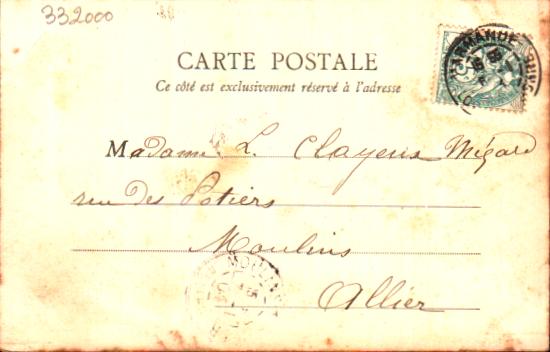 332000
CARTE POSTALE
Ce côté est exclusivement réservé à l'adresse
Madame L. Clayeux Mégard
rue des Potiers
Moulins
Allier